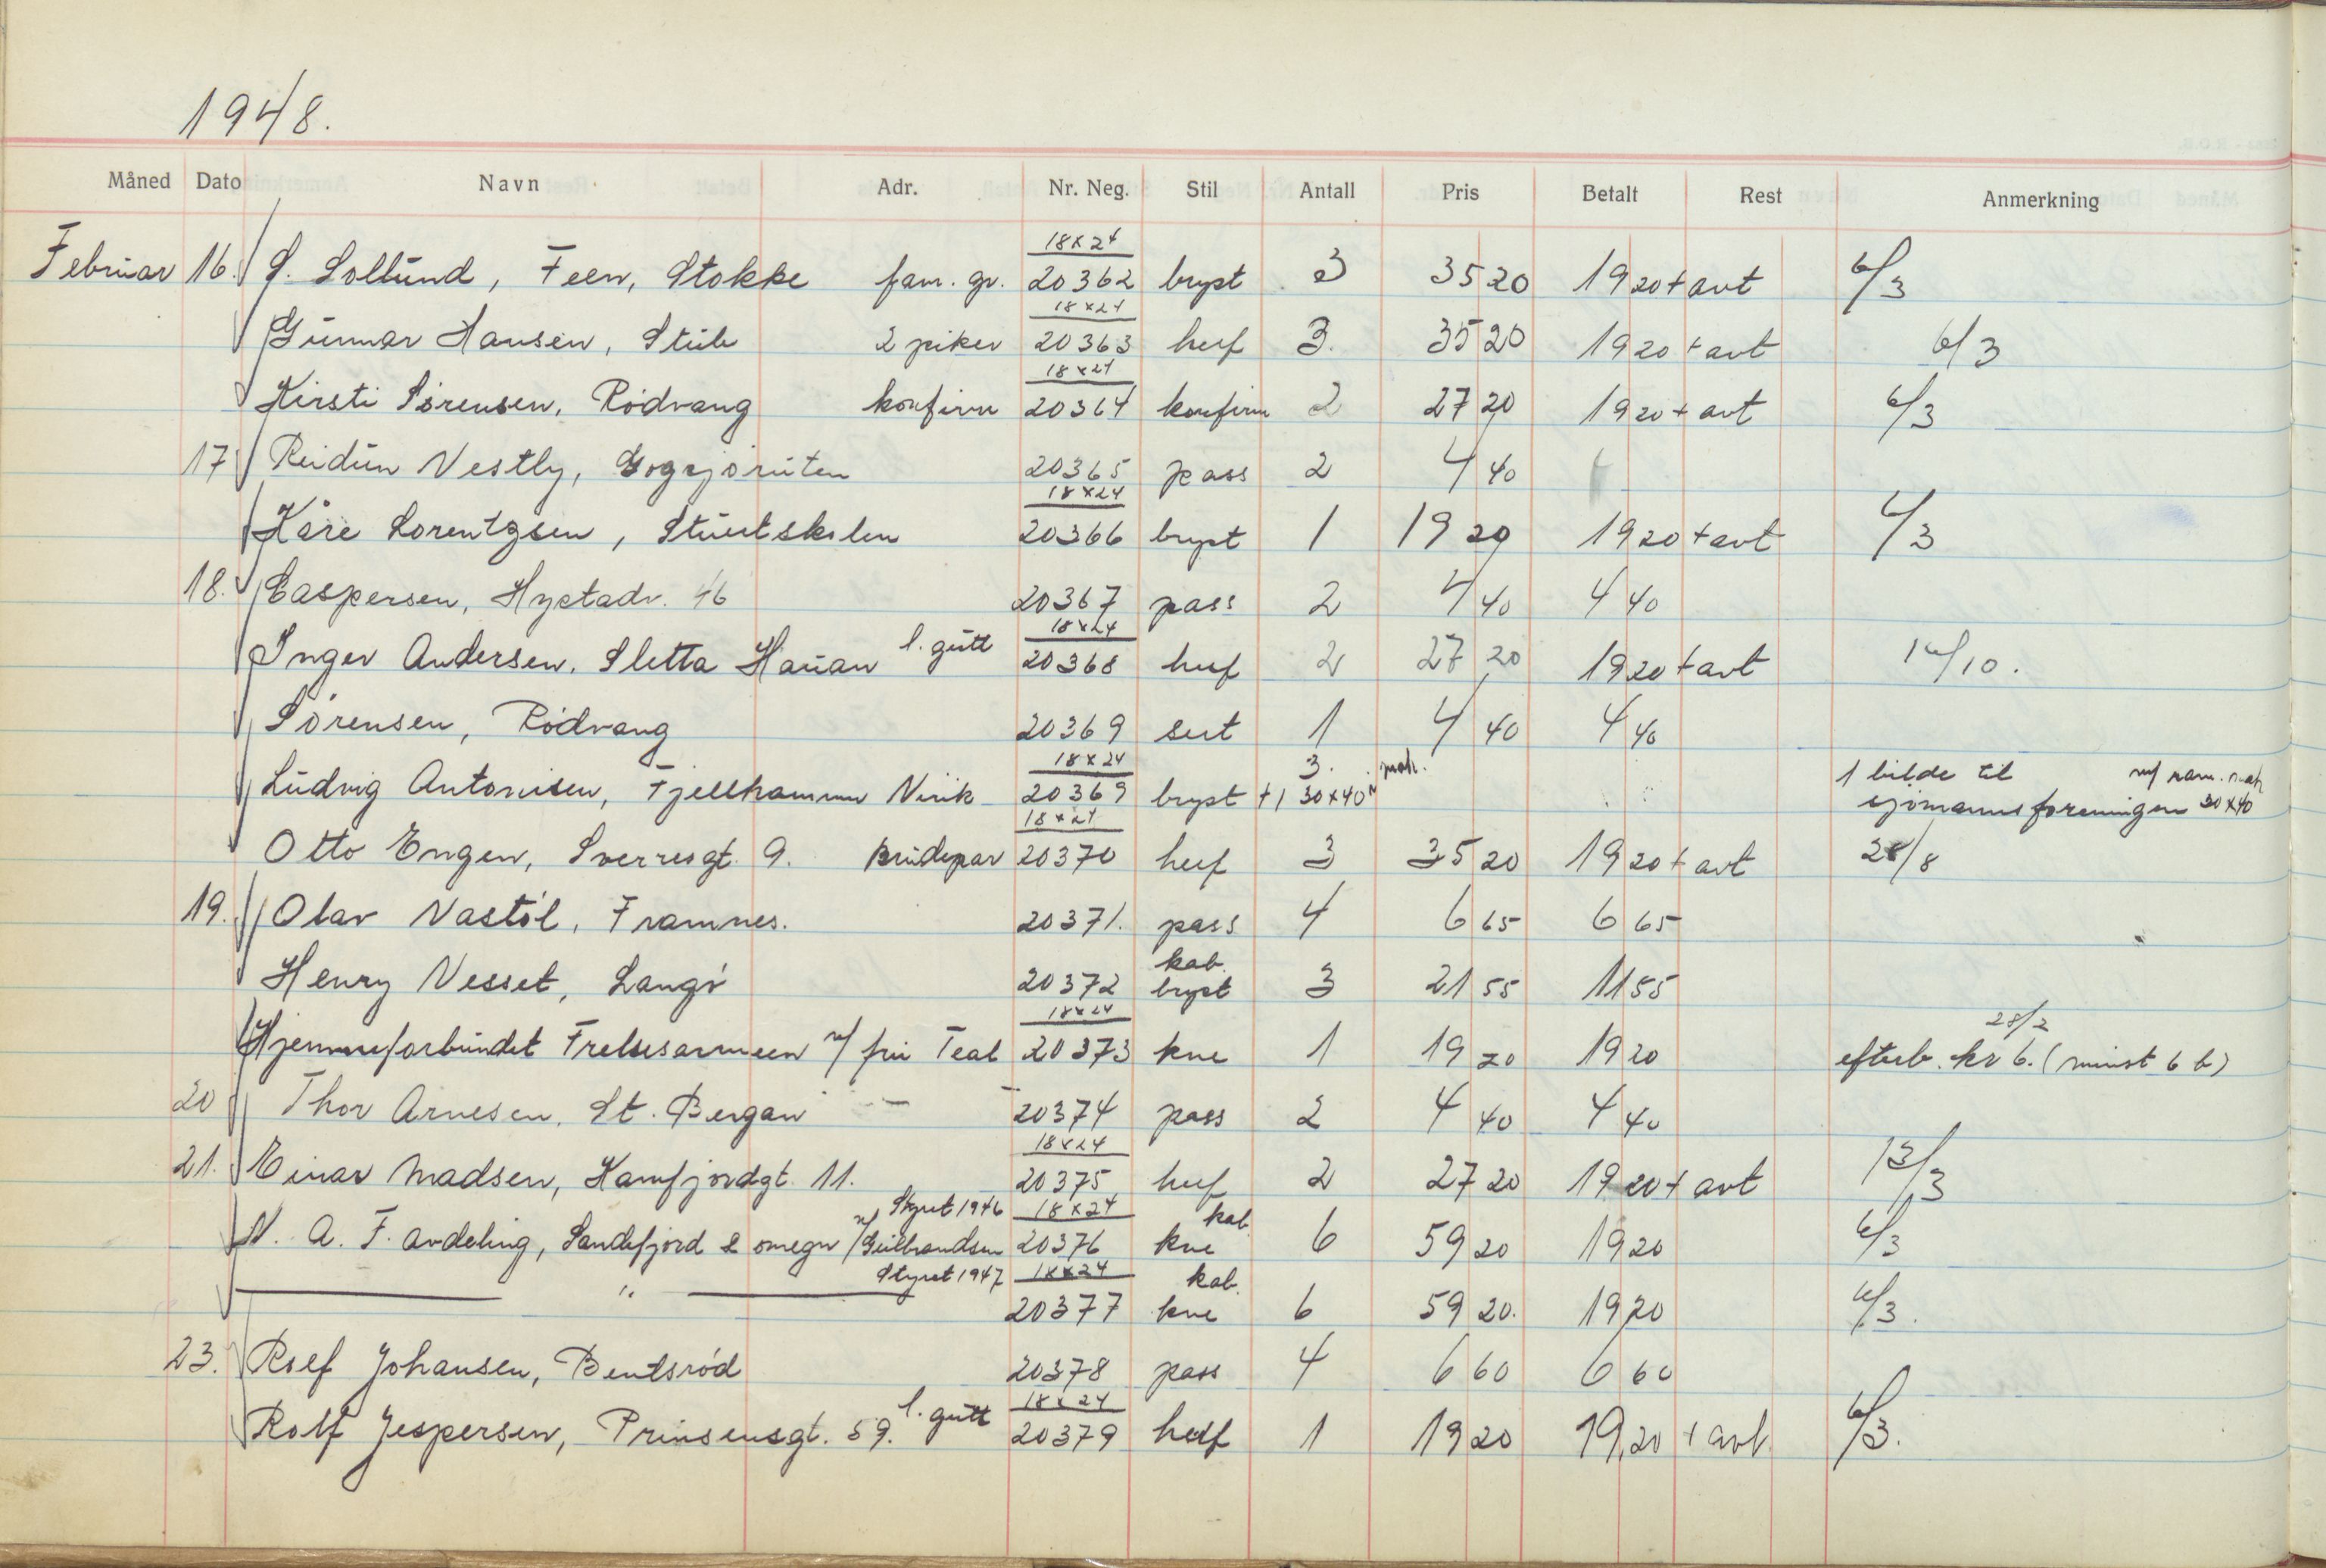 1948.
Måned Dato Navn Adr. Nr. Neg. Stil Antall Pris Betalt Rest Anmerkning
18x24
Februar 16. S. Sollund, Feen, Stokke fam. gr. 20362 bryst 3 35 20 19 20 + avt 6/3
18x24
Gunnar Hansen, Stub 2 piker 20363 huf 3. 35 20 19 20 + avt 6/3
18x24
Kirsti Sørensen, Rødvang konfirm 20364 konfirm 2 27 20 19 20 + avt 6/3
17 Reidun Vestly, 20365 pass 2 4 40
18x24
Kåre Lorentzsen, 20366 bryst 1 19 20 19 20 + avt 6/3
18. Caspersen, Hystadv. 46 20367 pass 2 4 40 4 40
18x24
Inger Andersen, Sletta Hauan l. gutt 20368 huf 2 27 20 19 20 + avt 14/10.
Sørensen, Rødvang 20369 1 4 40 4 40
18x24 3. mah.
Ludvig Antonisen, 20369 bryst +1 30x40 1 bilde til sjømannsforeningen m/ ram. mah 30x40
18x24
Otto Engen, Sverresgt. 9. Brudepar 20370 huf 3 35 20 19 20 + avt 28/8
19. Olav Nastøl, Framnes. 20371. pass 4 6 65 6 65
kab.
Henry Nesset, Langø 20372 bryst 3 21 55 11 55
18x24 28/2
Hjemmeforbundet Frelsesarmeen v/ fru Teal 20373 kne 1 19 20 19 20 efterb. kr 6. (minst 6 b)
20 Thor Arnesen, St. Bergan 20374 pass 2 4 40 4 40
18x24
21. Einar Madsen, Kamfjordgt. 11. 20375 huf 2 27 20 19 20 + avt 13/3
Styret 1946 18x24 kab.
N. A. F. avdeling, Sandefjord & omegn v/ Gulbrandsen 20376 kne 6 59 20 19 20 6/3
Styret 1947 18x24 kab.
" 20377 kne 6 59 20. 19 20 6/3.
23. Rolf Johansen, Bentsrød 20378 pass 4 6 60 6 60
18x24
Rolf Jespersen, Prinsensgt. 59. l. gutt 20379 huf 1 19 20 19,20 + avt. 6/3.